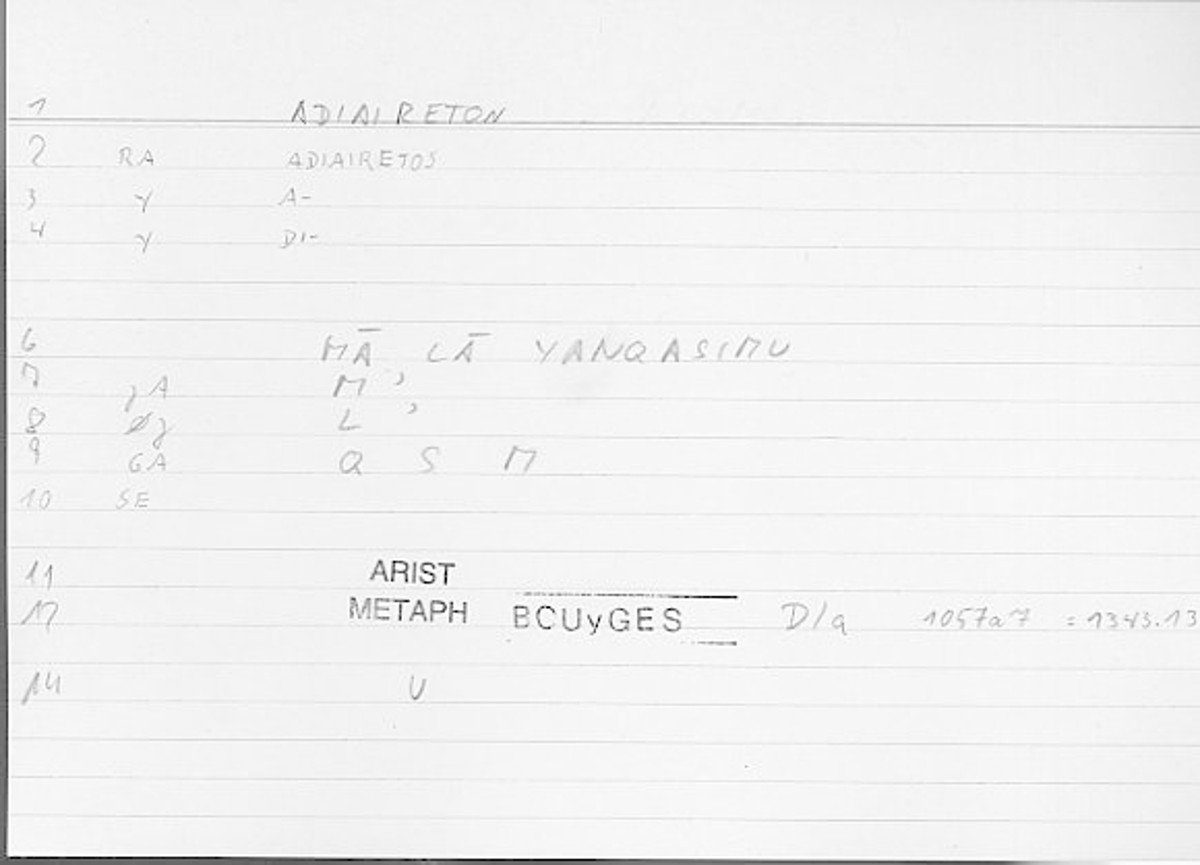 1 ADIAIRETON
2 RA ADIAIRETOS
3 γ A-
4 γ DI-
6 MĀ LĀ YANQASIMU
7 γA M ʾ
8 L ʾ
9 GA Q S M
10 SE
11 ARIST
12 METAPH BCUyGES D/a 1057a7 = 1343.13
14 U